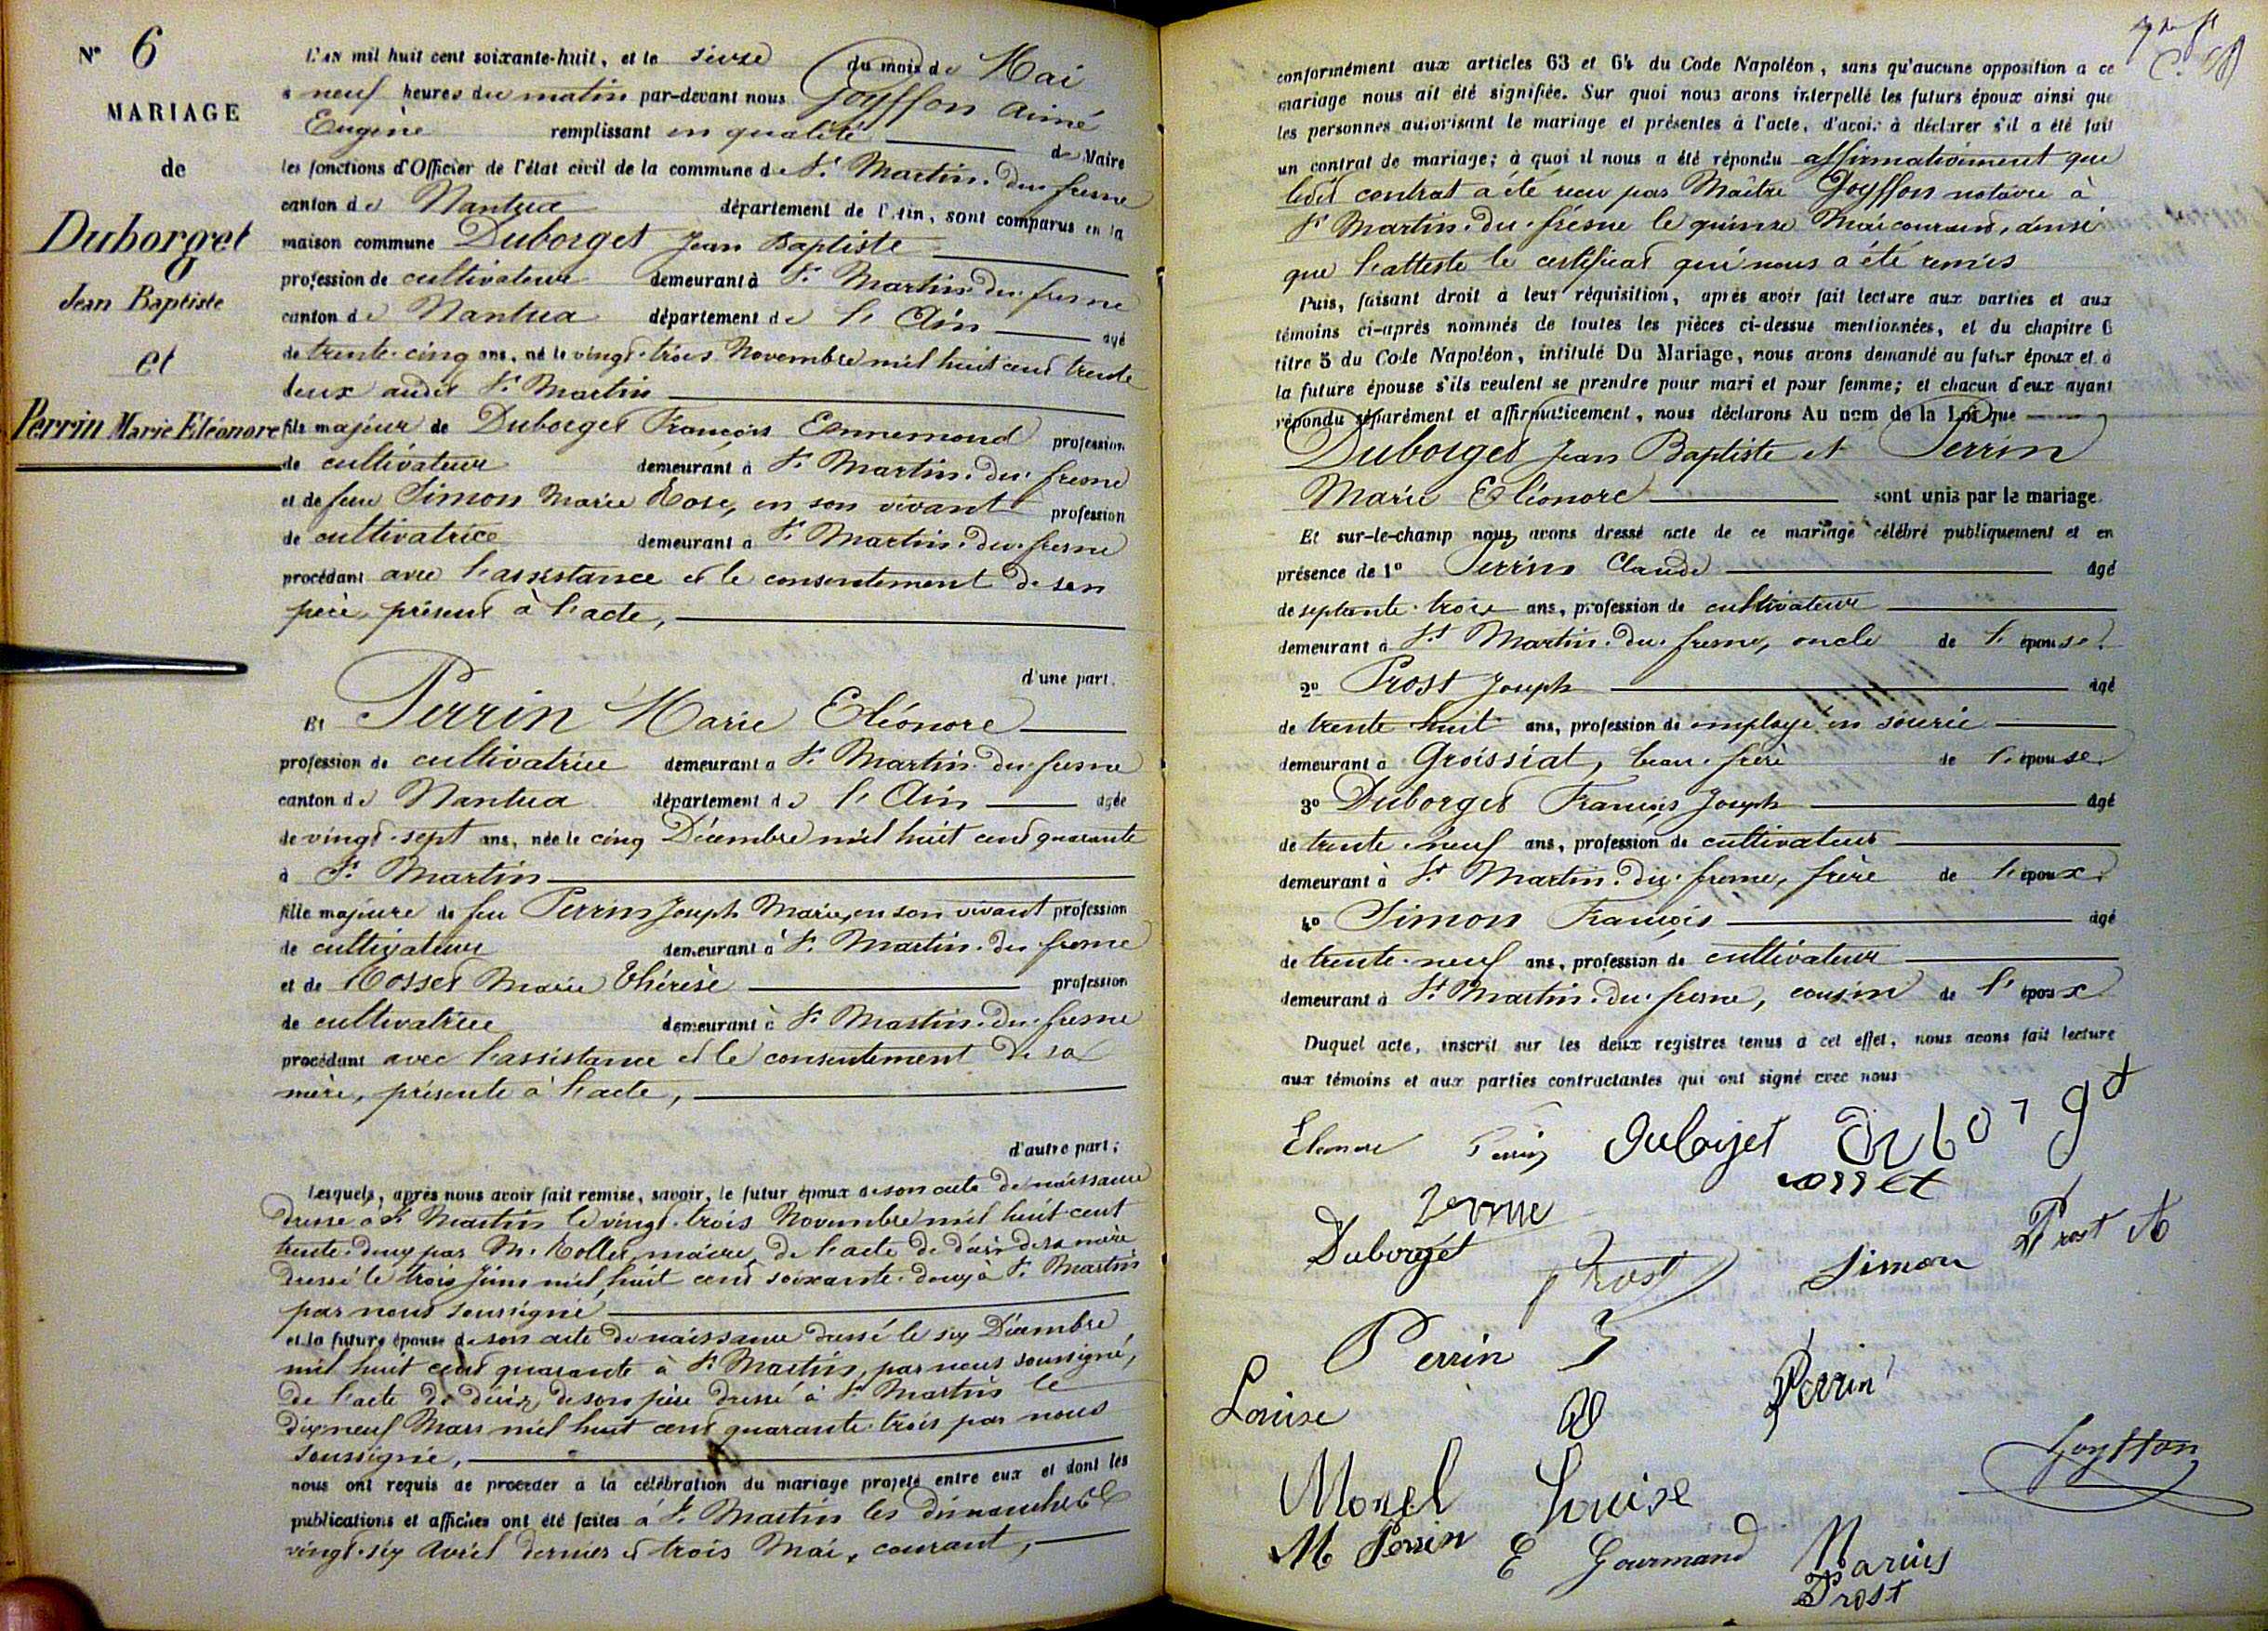 N° 6
MARIAGE
de
Duborget
Jean Baptiste
et
Perrin Marie Eléonore
L'AN mil huit cent soixante-huit, et le seize du mois de Mai
à neuf heures du matin par-devant nous Goyffon Aimé
Eugène remplissant en qualité de Maire
les fonctions d'Officier de l'état civil de la commune de St Martin-du-fresne
canton de Nantua département de l'Ain, sont comparus en la
maison commune Duborget Jean Baptiste
profession de cultivateur demeurant à St Martin-du-fresne
canton de Nantua département de l'Ain agé
de trente-cinq ans, né le vingt-trois Novembre mil huit cent trente
deux audit St Martin
fils majeur de Duborget François Ennemond profession
de cultivateur demeurant à St Martin-du-fresne
et de feue Simon Marie Rose, en son vivant profession
de cultivatrice demeurant à St Martin-du-fresne
procédant avec l'assistance et le consentement de son
père, présent à l'acte,
d'une part.
Et Perrin Marie Eléonore
profession de cultivatrice demeurant à St Martin-du-fresne
canton de Nantua département de l'Ain agée
de vingt-sept ans, née le cinq Décembre mil huit cent quarante
à St Martin
fille majeure de feu Perrin Joseph Marie, en son vivant profession
de cultivateur demeurant à St Martin-du-fresne
et de Cosset Marie Thérèse profession
de cultivatrice demeurant à St Martin-du-fresne
procédant avec l'assistance et le consentement de sa
mère, présente à l'acte,
d'autre part;
Lesquels, après nous avoir fait remise, savoir, le futur époux de son acte de naissance
dressé à St Martin le vingt-trois Novembre mil huit cent
trente-deux par M. Rollet, maire, de l'acte de décès de sa mère
dressé le trois Juin mil huit cent soixante-deux à St Martin
par nous soussigné
et la future épouse de son acte de naissance dressé le six Décembre
mil huit cent quarante à St Martin, par nous soussigné,
de l'acte de décès de son père dressé à St Martin le
dix neuf Mars mil huit cent quarante-trois par nous
soussigné,
nous ont requis de procéder à la célébration du mariage projeté entre eux et dont les
publications et affiches ont été faites à St Martin les dimanches
vingt-six Avril dernier et trois Mai, courant,
conformément aux articles 63 et 64 du Code Napoléon, sans qu'aucune opposition a ce
mariage nous ait été signifiée. Sur quoi nous avons interpellé les futurs époux ainsi que
les personnes autorisant le mariage et présentes à l'acte, d'avoir à déclarer s'il a été fait
un contrat de mariage; à quoi il nous a été répondu affirmativement que
ledit contrat a été reçu par Maître Goyffon notaire à
St Martin-du-fresne le quinze Mai courant, ainsi
que l'atteste le certificat qui nous a été remis
Puis, faisant droit à leur réquisition, après avoir fait lecture aux parties et aux
témoins ci-après nommés de toutes les pièces ci-dessus mentionnées, et du chapitre 6
titre 5 du Code Napoléon, intitulé Du Mariage, nous avons demandé au futur époux et à
la future épouse s'ils veulent se prendre pour mari et pour femme; et chacun d'eux ayant
répondu séparément et affirmativement, nous déclarons Au nom de la Loi que
Duborget Jean Baptiste et Perrin
Marie Eléonore sont unis par le mariage.
Et sur-le-champ nous avons dressé acte de ce mariage célébré publiquement et en
présence de 1° Perrin Claude agé
de septante-trois ans, profession de cultivateur
demeurant à St Martin-du-fresne, oncle de l'épouse.
2° Prost Joseph agé
de trente huit ans, profession de employé en soierie
demeurant à Groissiat, beau-frère de l'épouse.
3° Duborget François Joseph agé
de trente-neuf ans, profession de cultivateur
demeurant à St Martin-du-fresne, frère de l'époux.
4° Simon François agé
de trente-neuf ans, profession de cultivateur
demeurant à St Martin-du-fresne, cousin de l'époux
Duquel acte, inscrit sur les deux registres tenus à cet effet, nous avons fait lecture
aux témoins et aux parties contractantes qui ont signé avec nous
Eleonore Perrin Duborjet Duborgt
cosset
Duborget Prost Simon Prost A
Perrin J
Louise Perrin
Goyffon
Morel Louise
M Perrin E Gourmand Marius
Prost